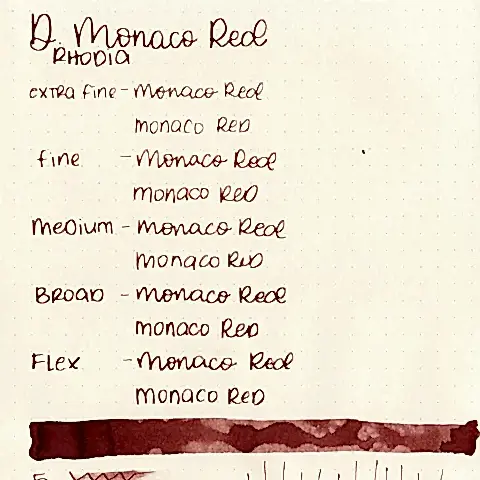 D. Monaco Red
RHODIA
extra fine - Monaco Red
monaco Red
fine - Monaco Red
monaco Red
medium - Monaco Red
monaco Red
Broad - Monaco Red
monaco Red
Flex - Monaco Red
monaco Red